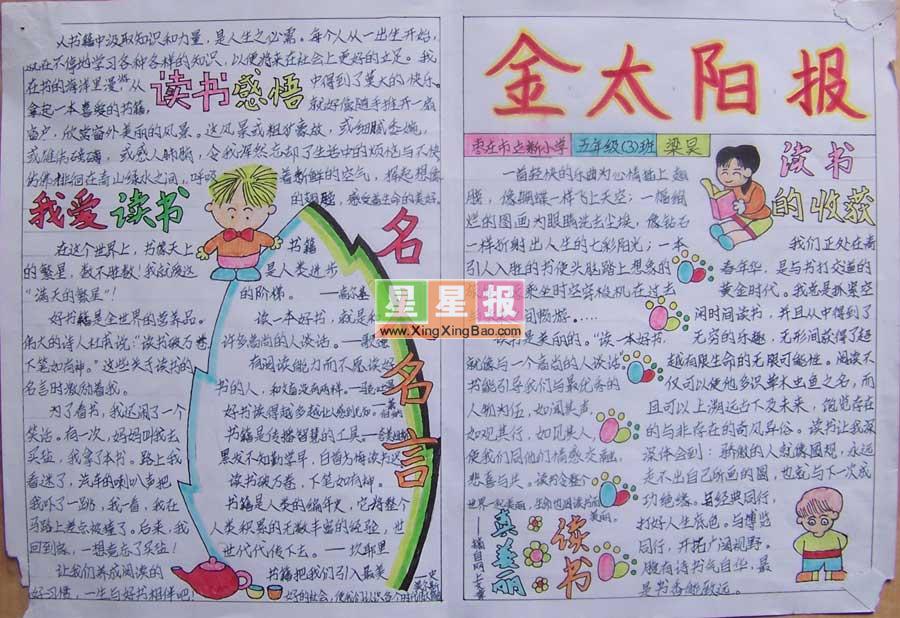 从书籍中汲取知识和力量,是人生之必需。每个人从一出生开始,
就在不停地学习各种各样的知识,以便将来在社会上更好的立足。我
在书的海洋里漫游,从
读书感悟
中得到了莫大的快乐。
拿起一本喜爱的书籍,
就好像随手推开一扇
窗户,欣赏窗外美丽的风景。这风景或粗犷豪放,或细腻委婉,
令我浑然忘却了生活中的烦恼与不快
着新鲜的空气,
我爱读书
在这个世界上,书像天上
的繁星,数不胜数!我就摘这
“满天的繁星”!
好书籍是全世界的营养品。
伟大的诗人杜甫说:“读书破万卷
下笔如有神。”这些关于读书的
名言时时激励着我。
为了看书,我还闹了一个
笑话。有一次,妈妈叫我去
买盐,我拿了本书。路上我
看迷了,汽车的喇叭声把
我吓了一跳,我一看,我在
马路上差点被撞了。后来,我
回到家,一想竟忘了买盐!
让我们养成阅读的
好习惯,一生与好书相伴吧!
名人名言
书籍
是人类进步
的阶梯。
读一本好书,就是和
许多高尚的人谈话。——歌德
书籍是传播智慧的工具。
黑发不知勤学早,白首方悔读书迟
读书破万卷,下笔如有神。
书籍是人类的编年史,它将整个
人类积累的无数丰富的经验,世
世代代传下去。
书籍把我们引入最美
好的社会,使我们认识各个时代
星星报
www.XingXingBao.com
金太阳报
枣庄市立新小学 五年级(3)班 梁昊
一首轻快的乐曲为心情插上翅
膀,像蝴蝶一样飞上天空;一幅绚
烂的图画为眼睛洗去尘埃,像钻石
一样折射出人生的七彩阳光;一本
引人入胜的书使头脑踏上想象的
乘坐时空穿梭机在过去
间畅游。....
读书是美丽的。“读一本好书,
就像与一个高尚的人谈话”
书能引导我们与最优秀的
人物为伍,如闻其声,
如观其行,如见其人,
使我们同他们情感交融,
悲喜与共。读书会让
世界一起美丽,
美丽。
读书真美丽
——摘自网上文章
读书的收获
我们正处在青
春年华,是与书打交道的
黄金时代。我总是抓紧空
闲时间读书,并且从中得到了
无穷的乐趣,无形间获得了超
越有限生命的无限可能性。阅读不
仅可以使他多识草木虫鱼之名,而
且可以上溯远古下及未来,饱览存在
的与非存在的奇风异俗。读书让我深
深体会到:骄傲的人就像圆规,永远
走不出自己所画的圆,也就与下一次成
功绝缘。与经典同行,
打好人生底色。与博览
同行,开拓广阔视野。
腹有诗书气自华,最
是书香能致远。